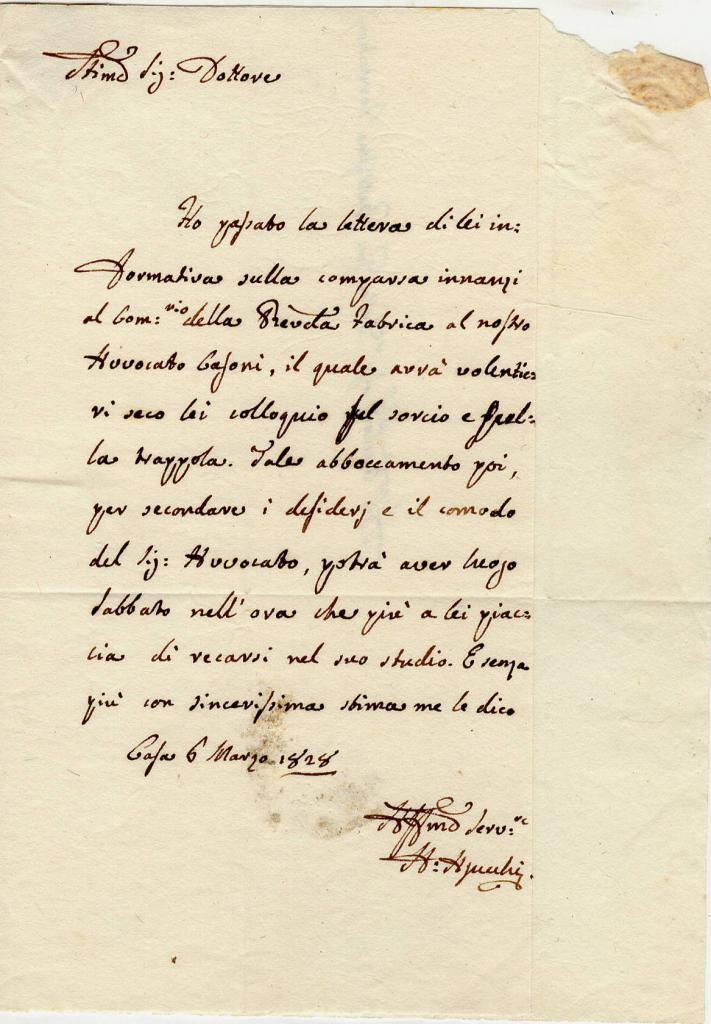 Stimo Sig: Dottore
Ho passato la lettera di lei in:
formativa sulla comparsa innanzi
al Com:rio della Rev.da Fabrica al nostro
Avvocato Casoni, il quale avrà volentie:
ri seco lei colloquio sul sorcio e sul:
la trappola. Tale abboccamento poi,
per secondare i desiderj e il comodo
del Sig: Avvocato, potrà aver luogo
Sabbato nell'ora che più a lei piac:
cia di recarsi nel suo studio. E senza
più con sincerissima stima me le dico
Casa 6 Marzo 1828
Affmo Serv:re
A: